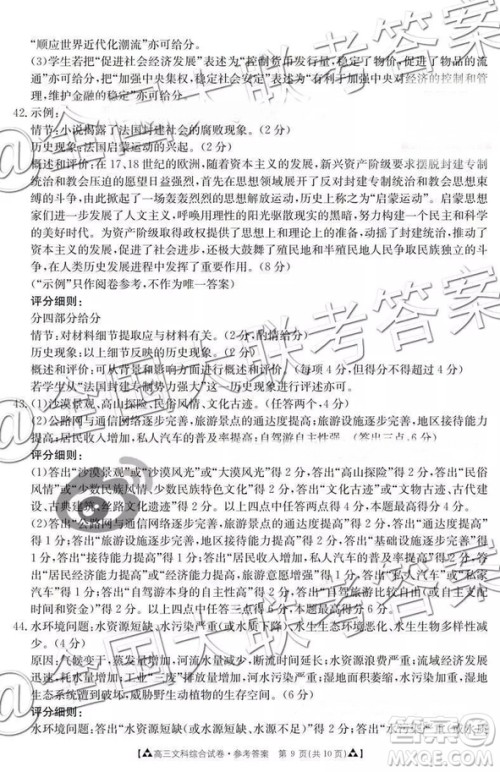 “顺应世界近代化潮流”亦可给分。
(3)学生若把“促进社会经济发展”表述为“促进生产力的发展”“促进农产品的流
通”亦可给分,把“加强中央集权,稳定社会安定”表述为“有利于加强中央对经济的控制和管
理,维护金融的稳定”亦可给分。
42. 示例:
情节:小说揭露了法国封建社会的腐败现象。(2分)
历史现象:法国启蒙运动。(2分)
概述和评价:在17、18世纪的欧洲,随着资本主义的发展,新兴资产阶级要求摆脱封建专
制统治和教会压迫的愿望日益强烈,首先在思想领域展开了反对封建专制统治和教会思想束
缚的斗争,由此掀起了一场轰轰烈烈的空前的思想解放运动,即“启蒙运动”。启蒙思想
家们进一步发展了人文主义,号召人们用理性的阳光驱散现实的黑暗。启蒙运动解放了人们
的思想,为资产阶级取得政权和发展提供了思想上和理论上的准备,推动了
资本主义的发展,启蒙著作还鼓舞了殖民地和半殖民地人民争取民族独立的斗争,
在人类历史发展进程中影响深远。(8分)
(“示例”只作阅卷参考,不作为唯一答案)
评分细则:
分四部分给分
情节:对材料细节提取应与材料有关。(2分,酌情给分)
历史现象:以上细节反映的历史现象。(2分)
概述和评价:可从背景和影响进行方面概括。(8分,但评价得分不得超过4分)
若学生从“法国封建专制势力强大”历史现象进行评述亦可。
43. (1)沙漠景观、高山探险、民俗风情、文化古迹。(任答两个,4分)
(2)公路网与通信网络逐步完善,旅游景点的通达度提高;旅游设施逐步完善,地区接待能力
提高;居民经济能力增强,私人汽车的普及率提高;自驾游自主性强。(答出三点,6分)
评分细则:
(1)答出“沙漠景观”或“沙漠风光”或“大漠风光”得2分,答出“高山探险”得2分,答出“民俗
风情”或“少数民族风情”或“少数民族特色文化”得2分,答出“文化古迹”或“文物古迹、古代建
筑、沙漠文化、丝路文化遗迹”得2分。以上四点中任答两点得4分,本题最高得分4分。
(2)答出“公路网与通信网络逐步完善,旅游景点的通达度提高”得2分,答出“基础设施逐步完
善”得1分,答出“旅游设施逐步完善,地区接待能力提高”得2分,答出
“接待能力提高”得1分,答出“居民经济能力增强,私人汽车的普及率提高”得2分,
答出“居民经济能力提高,旅游意愿增强”得2分,答出“自驾游旅游比较自由(或自主性
强)”得2分。以上四点任答三点得6分,本题最高得分6分。
44. 水环境问题:水资源短缺、水污染严重(或水质下降)、水生生态环境恶化、水生生物多样性减
少。(4分)
原因:气候变干,蒸发量增加,河流水量减少;地下水开采过度;水资源浪费严重;流域经济发展
迅速,耗水量增加;工业“三废”排放量增加,河水污染严重;湿地面积萎缩,水资源枯竭,湿地
生态系统遭到破坏,威胁野生动植物的生存环境。(6分)
评分细则:
水环境问题:答出“水资源短缺(或缺水、水源不足)”得2分,答出“水污染严重(或水质
高三文科综合试卷·参考答案 第9页(共10页)
@全国大联考答案